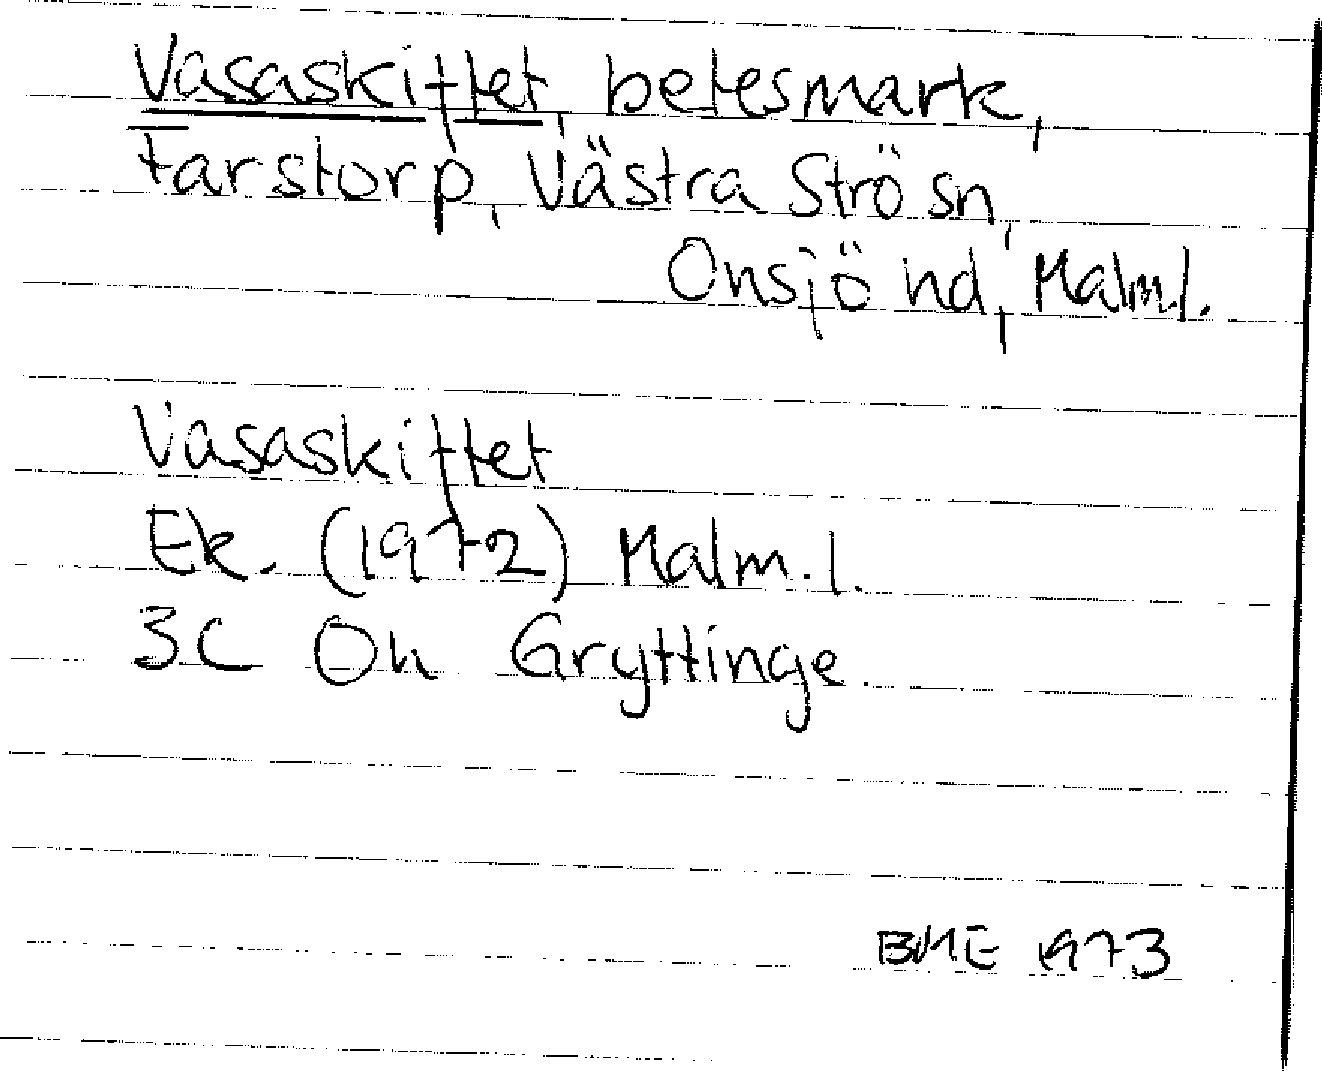 Vasaskiftet, betesmark,
Farstorp, Västra Strö sn,
Onsjö hd, Malm.l.
Vasaskiftet
Ek. (1972) Malm.l.
3C 0h Gryttinge
BME 1973